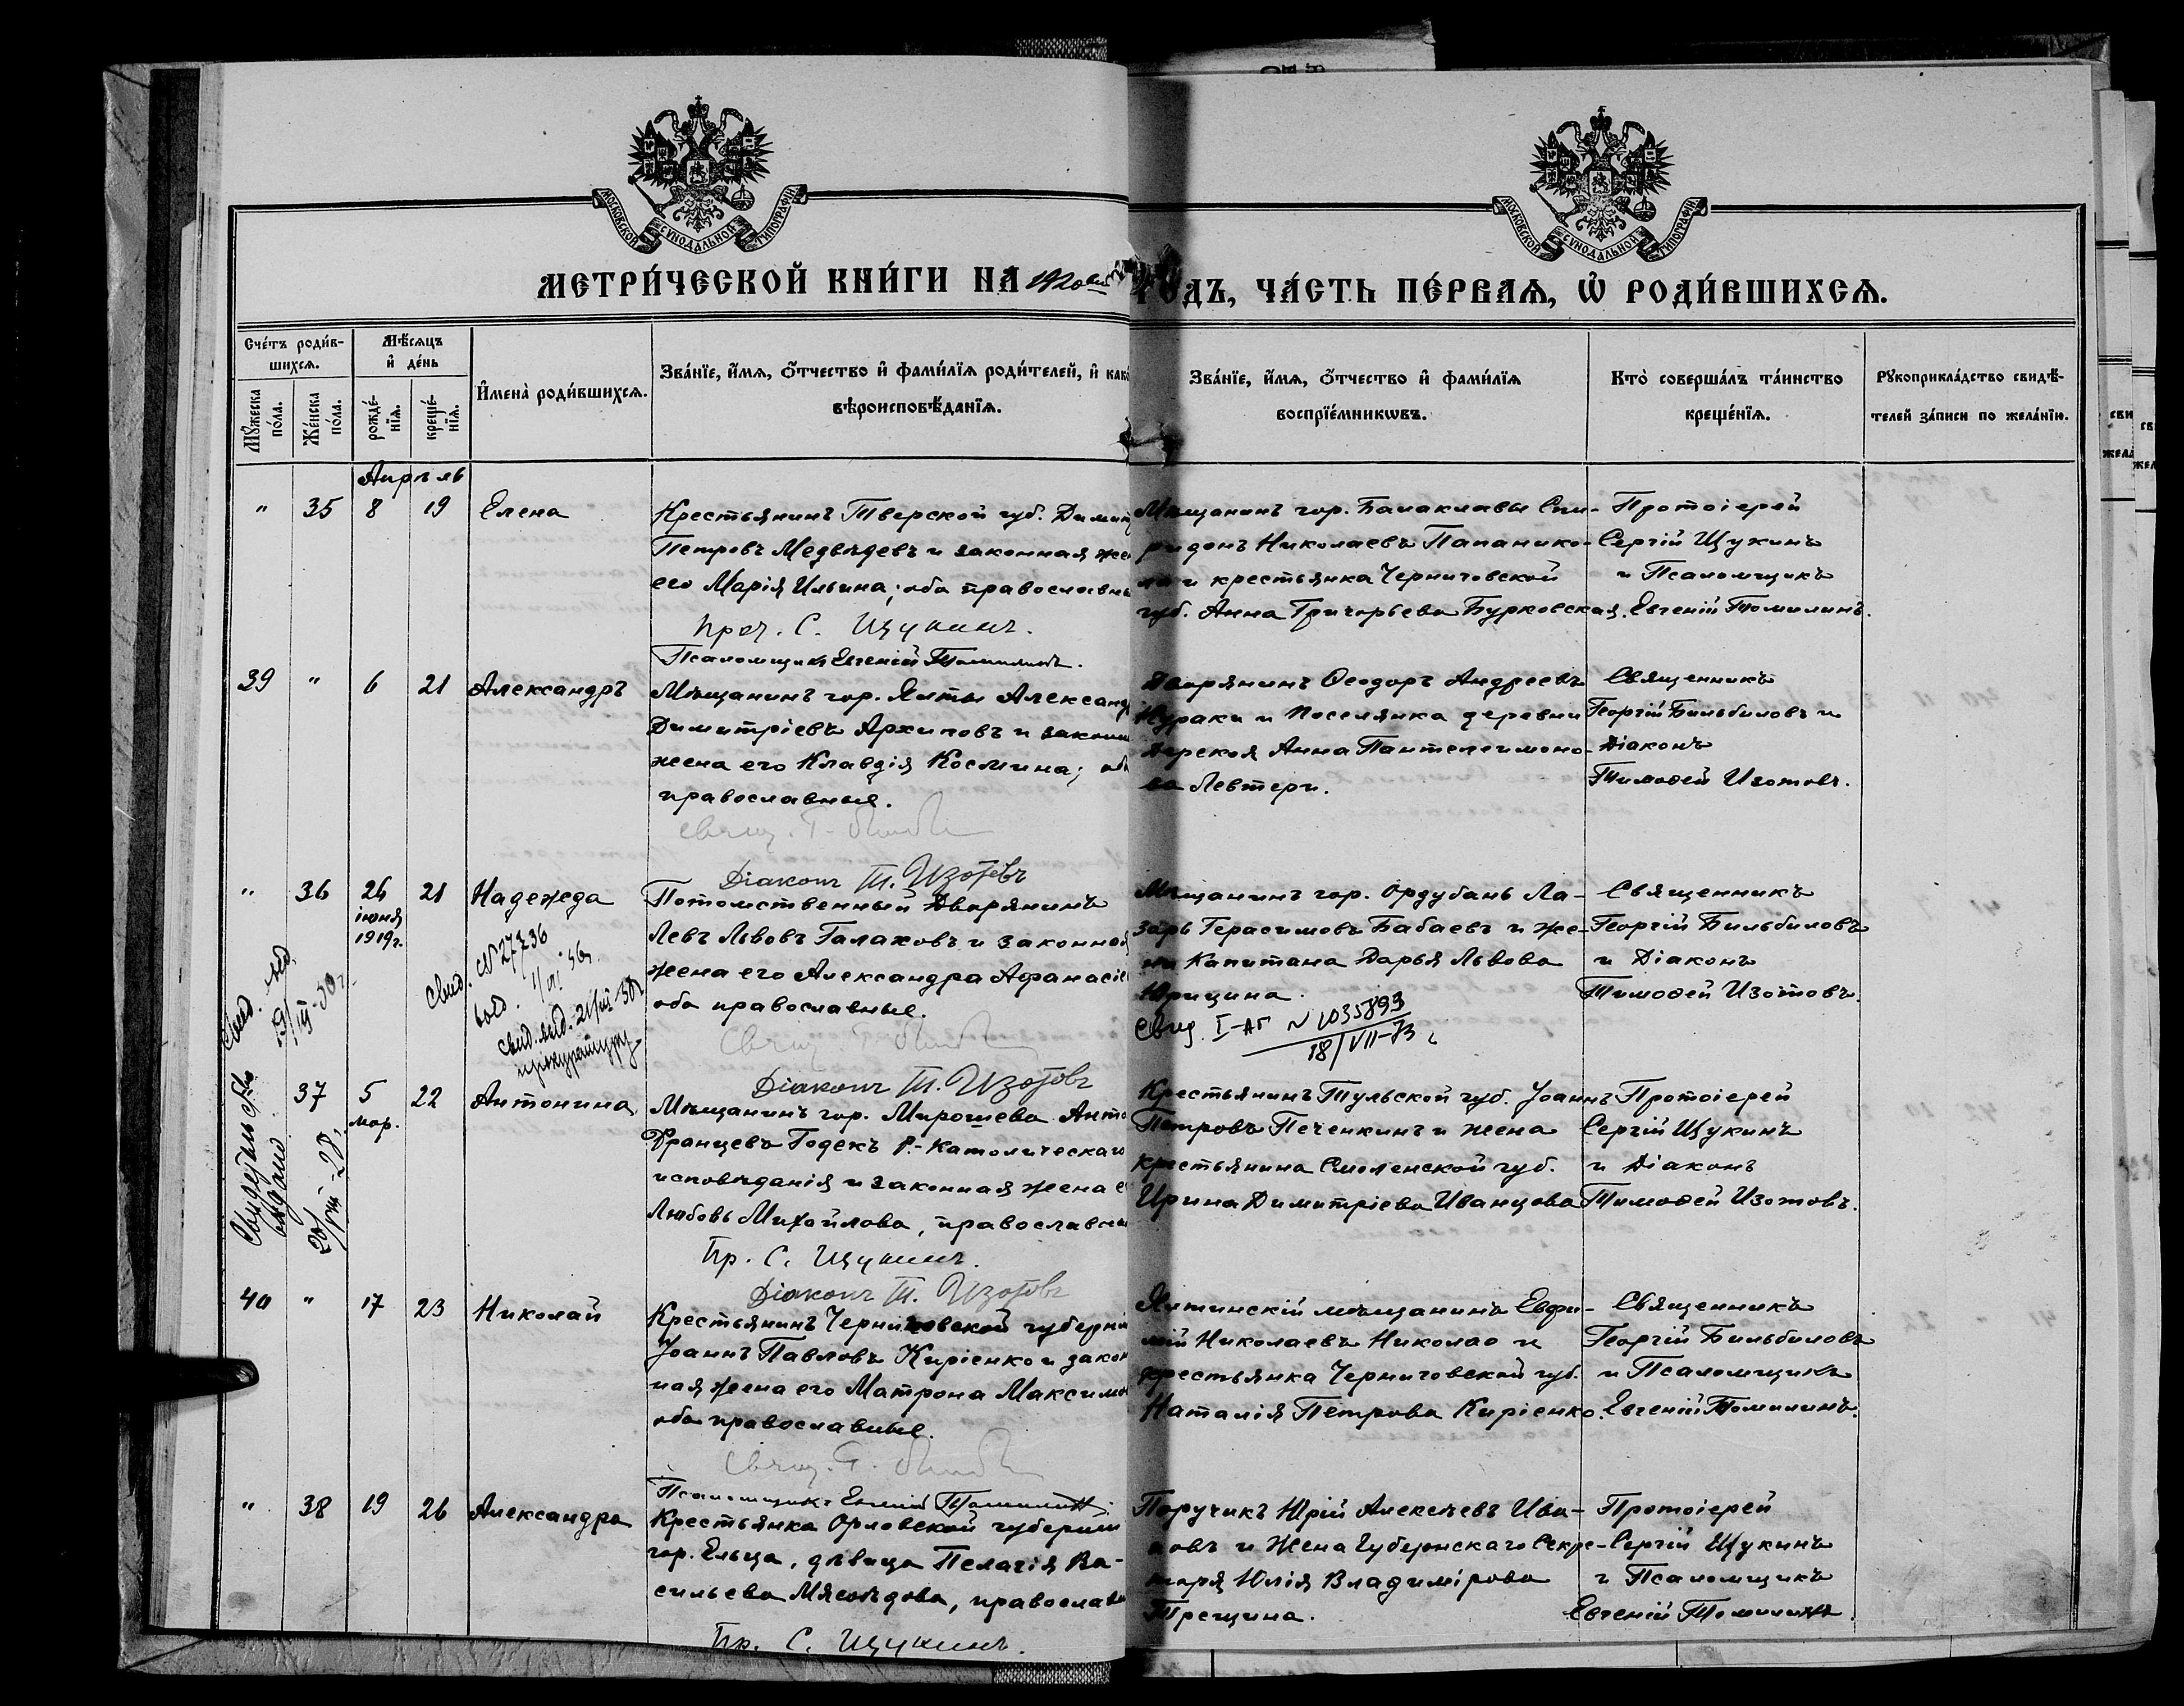 МОСКОВСКОЙ СѴНОДАЛЬНОЙ ТИПОГРАФІИ
МОСКОВСКОЙ СѴНОДАЛЬНОЙ ТИПОГРАФІИ
МЕТРИ́ЧЕСКОЙ КНИ́ГИ НА 1920 ый
ГОДЪ, ЧА́СТЬ ПЕ́РВАѦ, Ѡ҆ РОДИ́ВШИХСѦ.
Сче́тъ роди́в-
шихсѧ.
Мѣ́сѧцъ
и҆ де́нь
Мꙋ́жеска
по́ла.
Же́нска
по́ла.
рожде́-
нїѧ.
креще́-
нїѧ.
И҆мена̀ роди́вшихсѧ.
Зва́нїе, и҆́мѧ, ѻ҆́тчество и҆ фами́лїѧ роди́телей, и҆ како
вѣроисповѣ́данїѧ.
Зва́нїе, и҆́мѧ, ѻ҆́тчество и҆ фами́лїѧ
воспрїе́мникѡвъ.
Кто̀ соверша́лъ та́инство
креще́нїѧ.
Рꙋкоприкла́дство свидѣ́-
телей за́писи по жела́нїю.
Апрѣль
" 35 8 19 Елена
Крестьянинъ Тверской губ. Димит
Петровъ Медвѣдевъ и законная же
его Марія Ильина; оба православны
Прот. С. Щукинъ.
Псаломщикъ Евгеній Томилинъ.
Мѣщанинъ гор. Балаклавы Спи-
ридонъ Николаевъ Папанико-
ла и крестьянка Черниговской
губ. Анна Григорьева Бурковская.
Протоіерей
Сергій Щукинъ
и Псаломщикъ
Евгеній Томилинъ.
39 " 6 21 Александръ
Мѣщанинъ гор. Ялты Александ
Димитріевъ Архиповъ и законн
жена его Клавдія Космина; оба
православные.
Свящ. Г.
Діаконъ Т. Изотовъ
Дворянинъ Ѳеодоръ Андреевъ
Кураки и Поселянка деревни
Дерекоя Анна Пантелеимоно-
ва Левтери.
Священникъ
Георгій Бильбиловъ и
Діаконъ
Тимоѳей Изотовъ.
" 36 26 21 Надежда
іюня
1919 г.
Потомственный Дворянинъ
Левъ Львовъ Галаховъ и законная
жена его Александра Аѳанасіе
оба православные.
Свящ. Г.
Діаконъ Т. Изотовъ
Мѣщанинъ гор. Ордубань Ла-
зарь Герасимовъ Бабаевъ и же-
на Капитана Дарья Львова
Юрицина.
Свид. I-АГ № 1035893
18/VII-73 г.
Священникъ
Георгій Бильбиловъ
и Діаконъ
Тимоѳей Изотовъ.
Свид. № 27736
выд.
свид. выд. 21/VII-50г
прокуратуру
Свид. выд.
37 5 22 Антонина
мар.
Мѣщанинъ гор. Мирошева Анто
Францевъ Годекъ Р.-Католическаго
исповѣданія и законная жена е
Любовь Михайлова, православн
Пр. С. Щукинъ.
Діаконъ Т. Изотовъ
Крестьянинъ Тульской губ. Іоаннъ
Петровъ Печенкинъ и жена
крестьянина Смоленской губ.
Ирина Димитріева Иванцова
Протоіерей
Сергій Щукинъ
и Діаконъ
Тимоѳей Изотовъ.
выдано
40 " 17 23 Николай
Крестьянинъ Черниговской губерни
Іоаннъ Павловъ Кирієнко и закон
ная жена его Матрона Максимо
оба православные.
Свящ. Г.
Псаломщикъ Евгеній Томилинъ.
Ялтинскій мѣщанинъ Евфи-
мій Николаевъ Николао и
крестьянка Черниговской губ.
Наталія Петрова Кирієнко.
Священникъ
Георгій Бильбиловъ
и Псаломщикъ
Евгеній Томилинъ.
" 38 19 26 Александра
Крестьянка Орловской губерніи
гор. Ельца, дѣвица Пелагія Ва-
сильева Мясоѣдова, православн
Пр. С. Щукинъ.
Поручикъ Юрій Алексѣевъ Ива-
новъ и Жена Губернскаго Секре-
таря Юлія Владимірова
Трещина.
Протоіерей
Сергій Щукинъ
и Псаломщикъ
Евгеній Томилинъ.